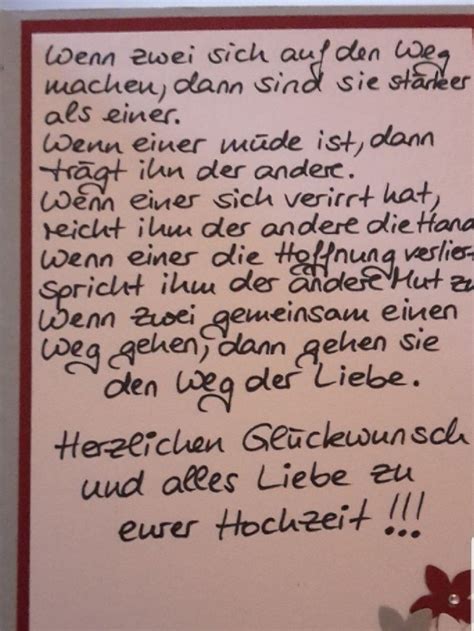 Wenn zwei sich auf den Weg
machen, dann sind sie stärker
als einer.
Wenn einer müde ist, dann
trägt ihn der andere.
Wenn einer sich verirrt hat,
reicht ihm der andere die Hand
Wenn einer die Hoffnung verlier
spricht ihm der andere Mut zu
Wenn zwei gemeinsam einen
Weg gehen, dann gehen sie
den Weg der Liebe.
Herzlichen Glückwunsch
und alles Liebe zu
eurer Hochzeit!!!